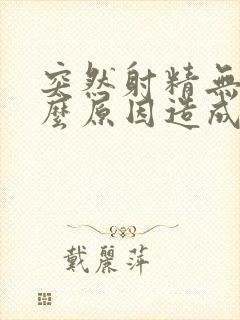 突然射精無
麼原因造成
戴麗萍